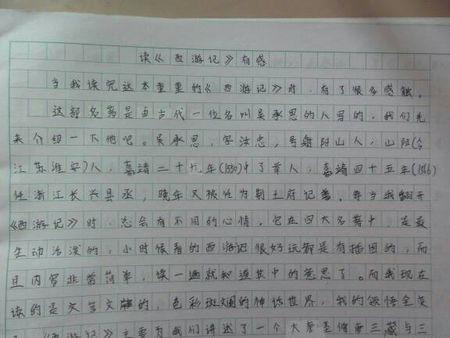 读《西游记》有感
当我读完这本重重的《西游记》时,有了很多感触。
这部名著是由古代一位名叫吴承恩的人写的,我们先
来介绍一下他吧。吴承恩,字汝忠,号射阳山人,山阳(今
江苏淮安)人,嘉靖二十九年(1550)中了举人,嘉靖四十五年(1566)
任浙江长兴县丞,晚年又被任为荆王府记善。每当我翻开
《西游记》时,总会有不同的心情,它在四大名著中,是最
生动活泼的,小时候看的西游记很好玩都是有插图的,而
且内容非常简单,读一遍就知道其中的意思了。而我现在
读的是文字文的,色彩斑斓的神话世界,我的领悟全笑
《西游记》主要为我们讲述了一个大唐是僧唐三藏与三